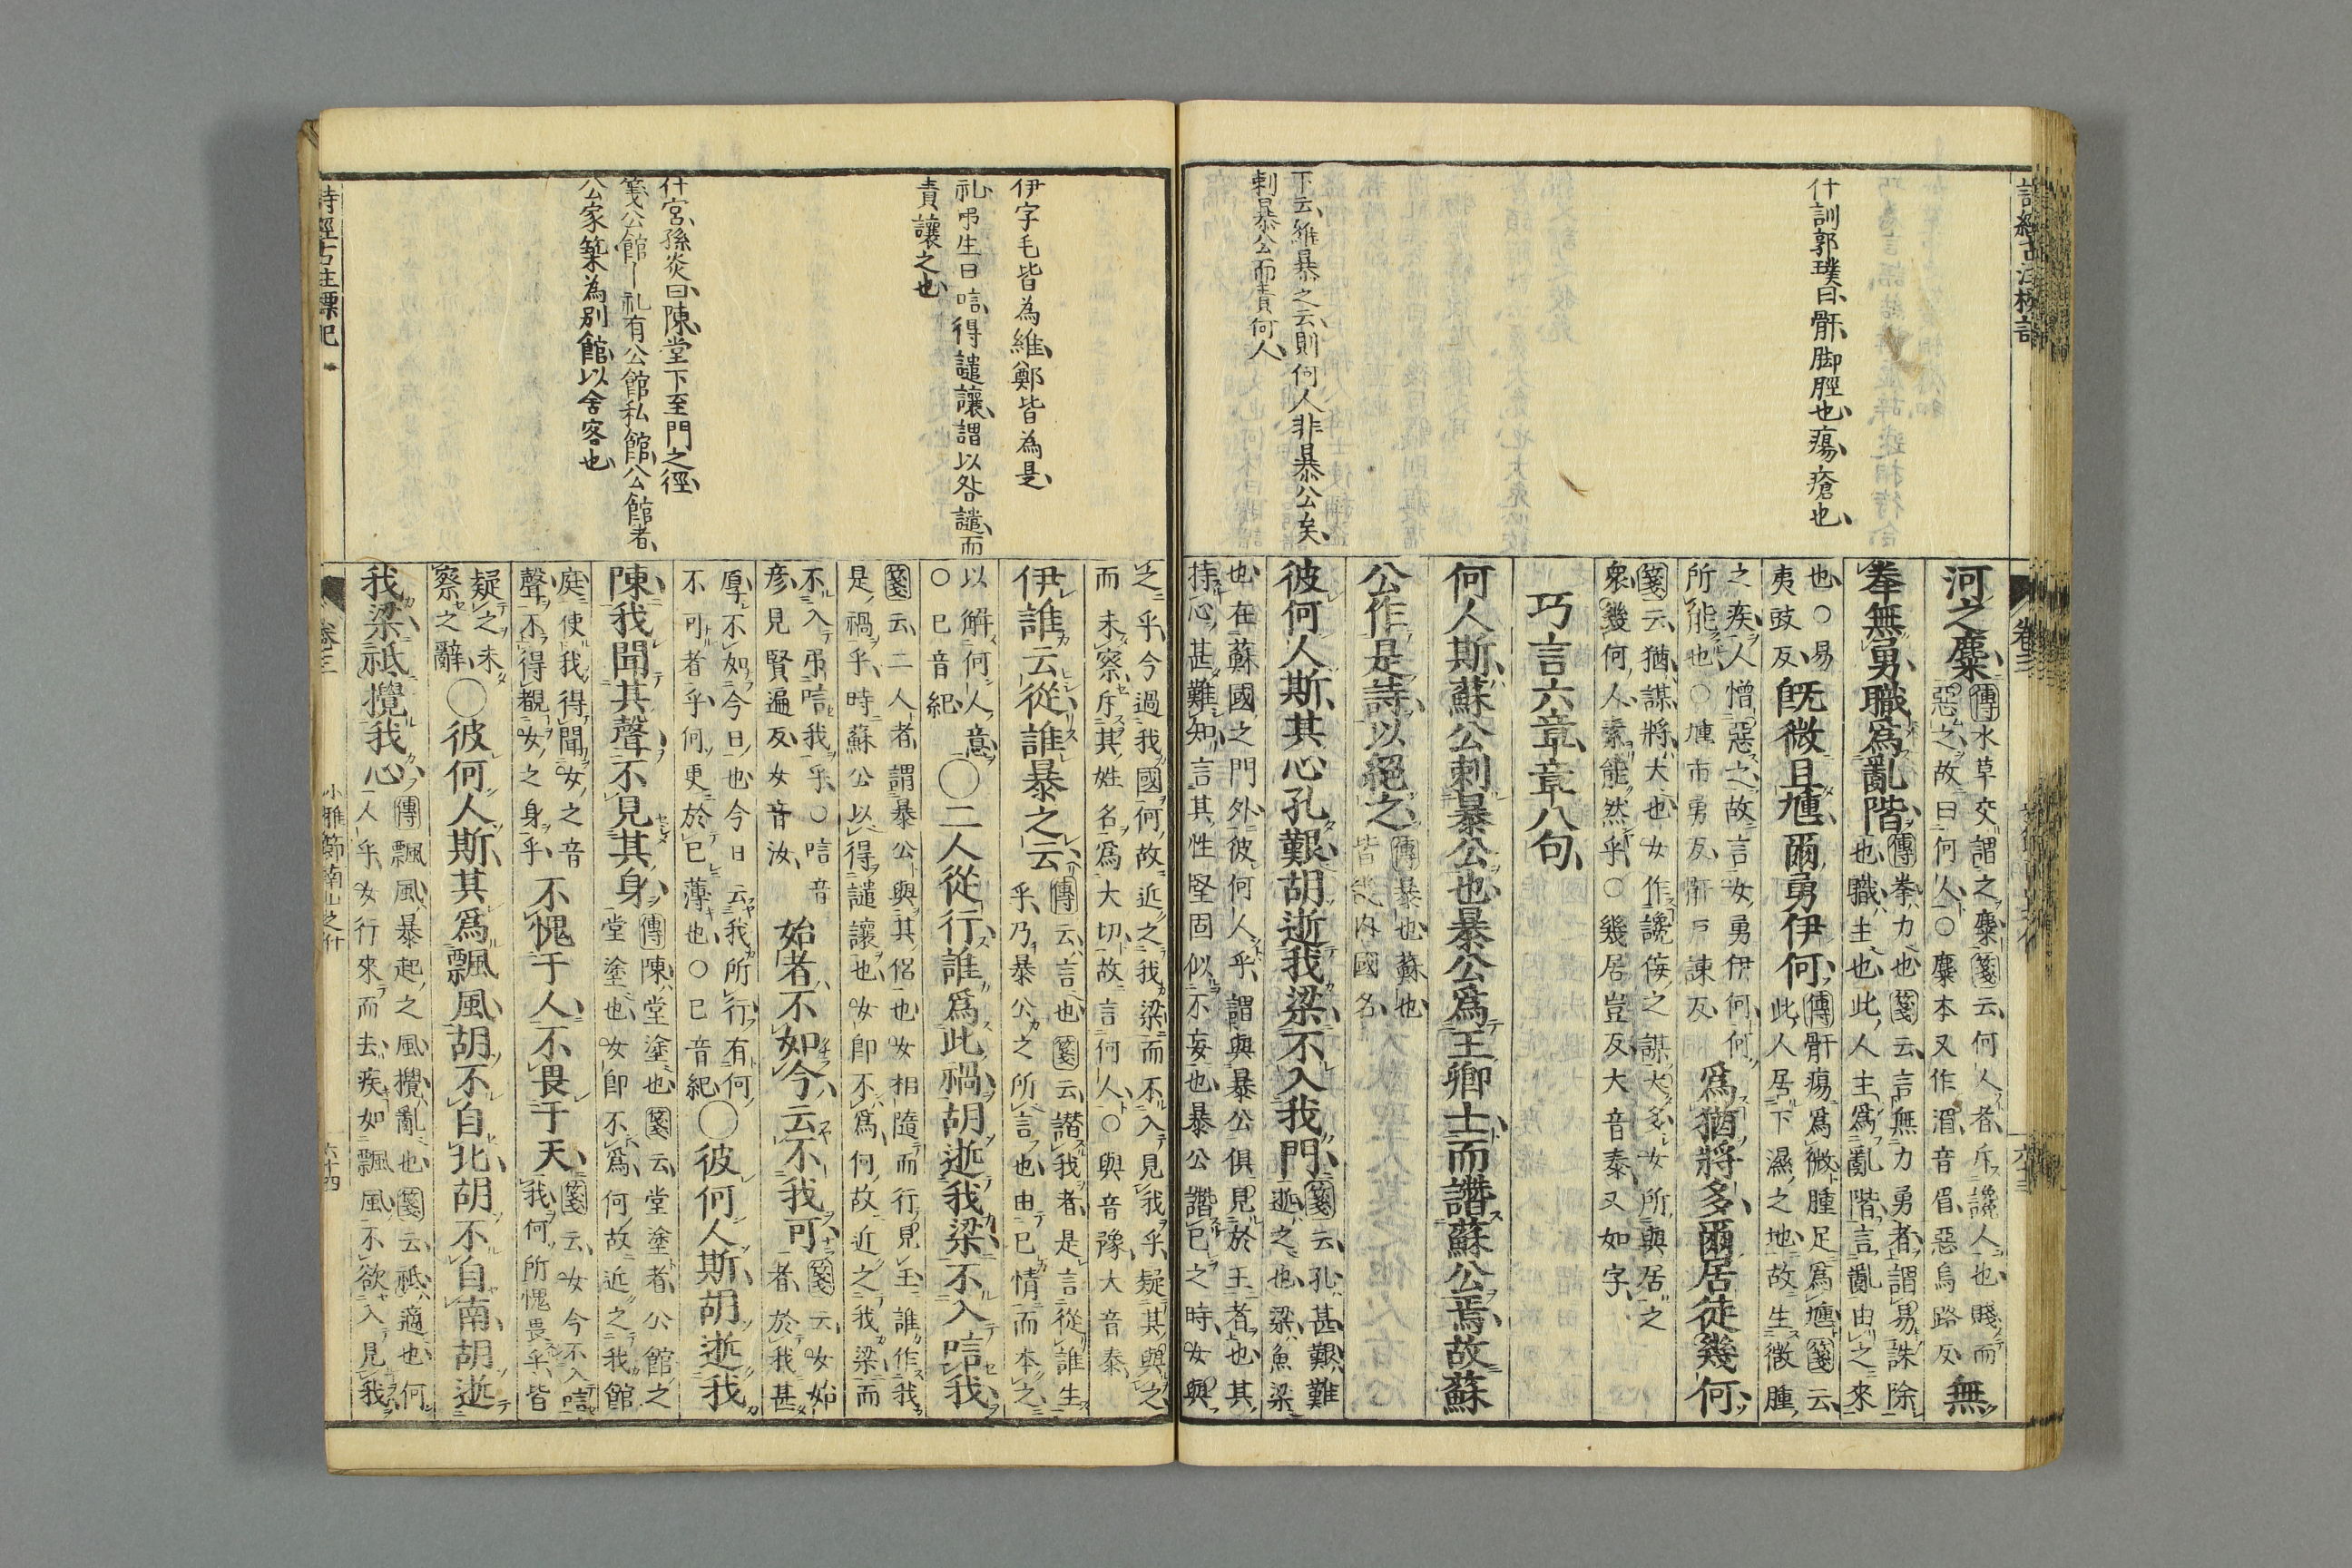 什訓郭璞曰骭脚脛也瘍瘡也
下云維暴之云則何人非暴公矣
刺暴公而責何人
河之麋傳水草交謂之麋箋云何人者斥讒人也賤而
惡之故曰何人○麋本又作湄音眉惡烏路反無
拳無勇職爲亂階傳拳力也箋云言無力勇者謂易誅除
也職主也此人主爲亂階言亂由之來
也○易
夷豉反既微且尰爾勇伊何傳骭瘍爲微腫足爲尰箋云
此人居下濕之地故生微腫
之疾人憎惡之故言女勇伊何何
所能也○尰市勇反骭戸諌反爲猶將多爾居徒幾何
箋云猶謀將大也女作讒佞之謀大多女所與居之
衆幾何人素能然乎○幾居豈反大音泰又如字
巧言六章章八句
何人斯蘇公刺暴公也暴公爲王卿士而譖蘇公焉故蘇
公作是詩以絕之傳暴也蘇也
皆畿内國名
彼何人斯其心孔艱胡逝我梁不入我門箋云孔甚艱難
逝之也梁魚梁
也在蘇國之門外彼何人乎謂與暴公俱見於王者也其
持心甚難知言其性堅固似不妄也暴公譖已之時女與
伊字毛皆為維鄭皆為是
礼弔生曰唁得譴讓謂以咎譴而
責讓之也
什宮孫炎曰陳堂下至門之徑
箋公館｜礼有公館私館公館者
公家築為別館以舍客也
之乎今過我國何故近之我梁而不入見我乎疑其與之
而未察斥其姓名爲大切故言何人○與音豫大音泰
伊誰云從誰暴之云傳云言也箋云譖我者是言從誰生
乎乃暴公之所言也由已情而本之
以解何人意
○已音紀○二人從行誰爲此禍胡逝我梁不入唁我
箋云二人者謂暴公與其侶也女相隨而行見王誰作我
是禍乎時蘇公以得譴讓也女即不爲何故近之我梁而
不入弔唁我乎○唁音
彦見賢遍反女音汝始者不如今云不我可箋云女始
者於我甚
厚不如今日也今日云我所行有何
不可者乎何更於已薄也○已音紀○彼何人斯胡逝我
陳我聞其聲不見其身傳陳堂塗也箋云堂塗者公館之
堂塗也女即不爲何故近之我館
庭使我得聞女之音
聲不得覩女之身乎不愧于人不畏于天箋云女今不入唁
我何所愧畏乎皆
疑之未
察之辭○彼何人斯其爲飄風胡不自北胡不自南胡逝
我梁祇攪我心傳飄風暴起之風攪亂也箋云祇適也何
人乎女行來而去疾如飄風不欲入見我
詩經古註標記
卷三
小雅節南山之什
六十四